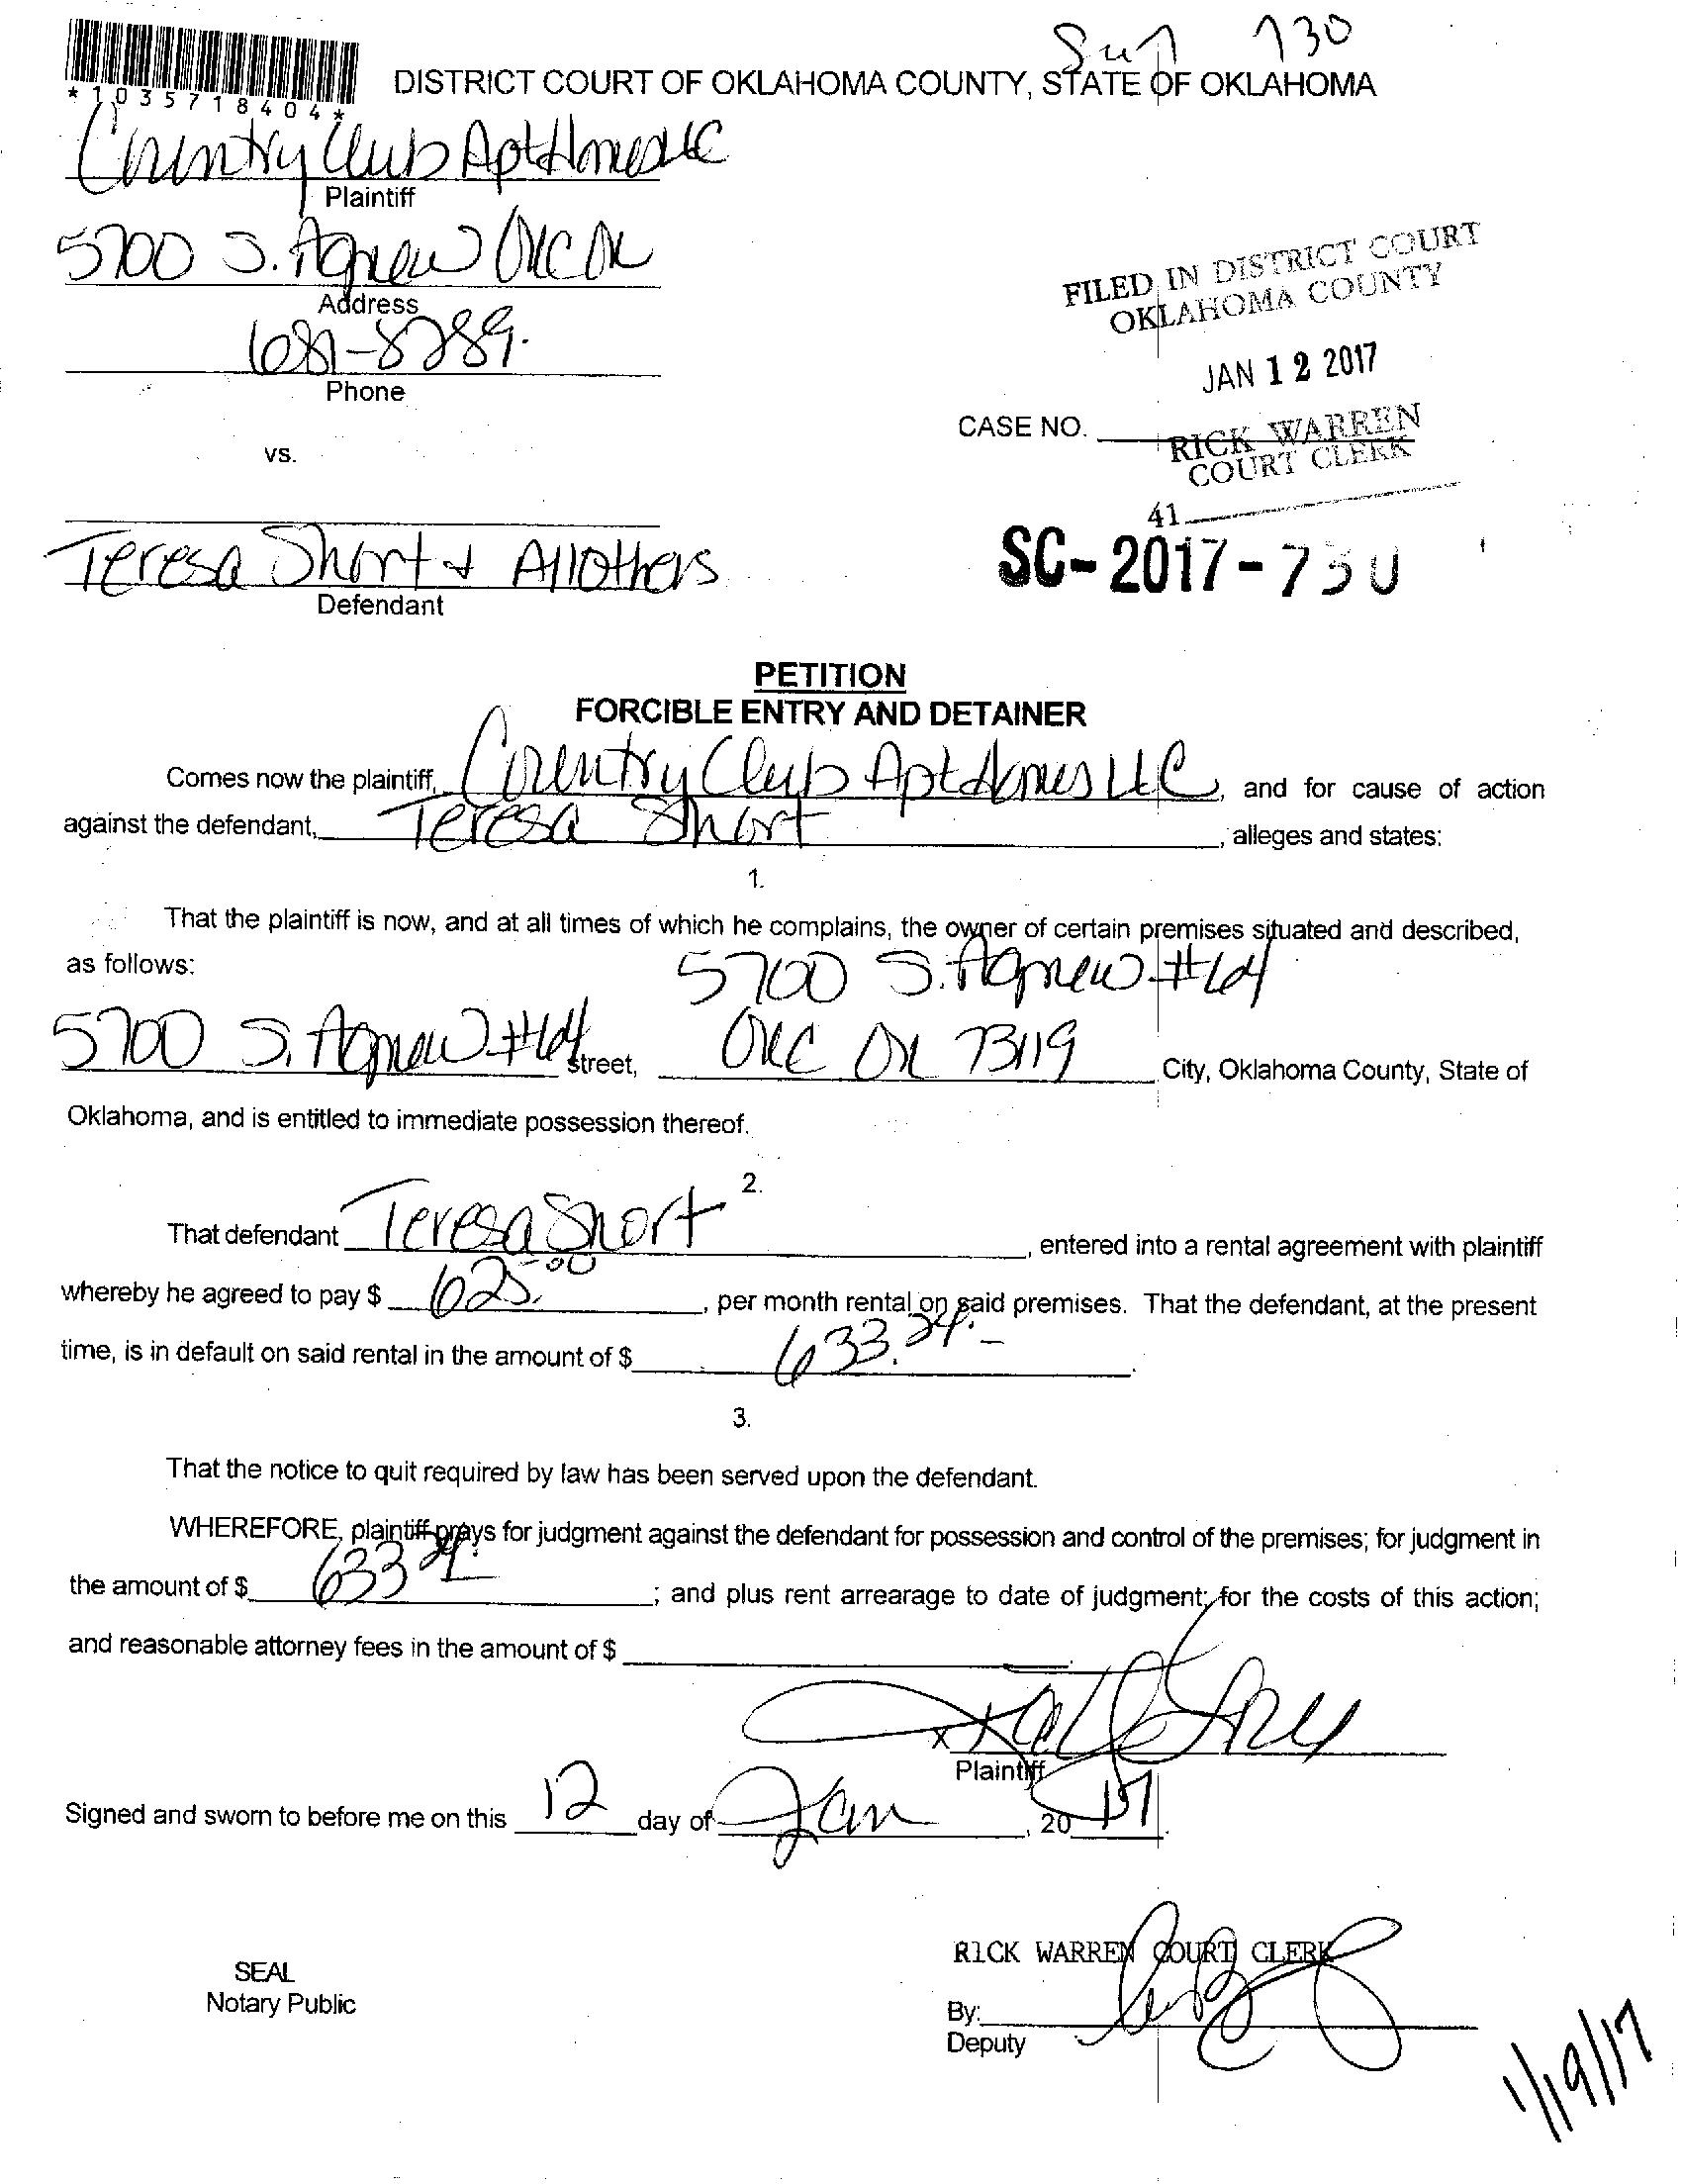 730
DISTRICT COURT OF OKLAHOMA COUNTY, STATE OF OKLAHOMA
*1035718404*
Country Club Apt Homes LLC
Plaintiff
5700 S. Agnew OKC OK
Address
681-8289.
Phone
FILED IN DISTRICT COURT
OKLAHOMA COUNTY
JAN 12 2017
CASE NO.
RICK WARREN
COURT CLERK
vs.
41
SC-2017-730
Teresa Short + All Others
Defendant
PETITION
FORCIBLE ENTRY AND DETAINER
Comes now the plaintiff, Country Club Apt Homes LLC, and for cause of action
against the defendant, Teresa Short, alleges and states:
1.
That the plaintiff is now, and at all times of which he complains, the owner of certain premises situated and described,
as follows: 5700 S. Agnew #64
5700 S. Agnew #64 street, OKC OK 73119 City, Oklahoma County, State of
Oklahoma, and is entitled to immediate possession thereof.
2.
That defendant Teresa Short, entered into a rental agreement with plaintiff
whereby he agreed to pay $ 625.00, per month rental on said premises. That the defendant, at the present
time, is in default on said rental in the amount of $ 633.24.
3.
That the notice to quit required by law has been served upon the defendant.
WHEREFORE, plaintiff prays for judgment against the defendant for possession and control of the premises; for judgment in
the amount of $ 633.24; and plus rent arrearage to date of judgment; for the costs of this action;
and reasonable attorney fees in the amount of $
X
Plaintiff
Signed and sworn to before me on this 12 day of Jan, 20 17.
RICK WARREN COURT CLERK
SEAL
Notary Public
By:
Deputy
1/19/17